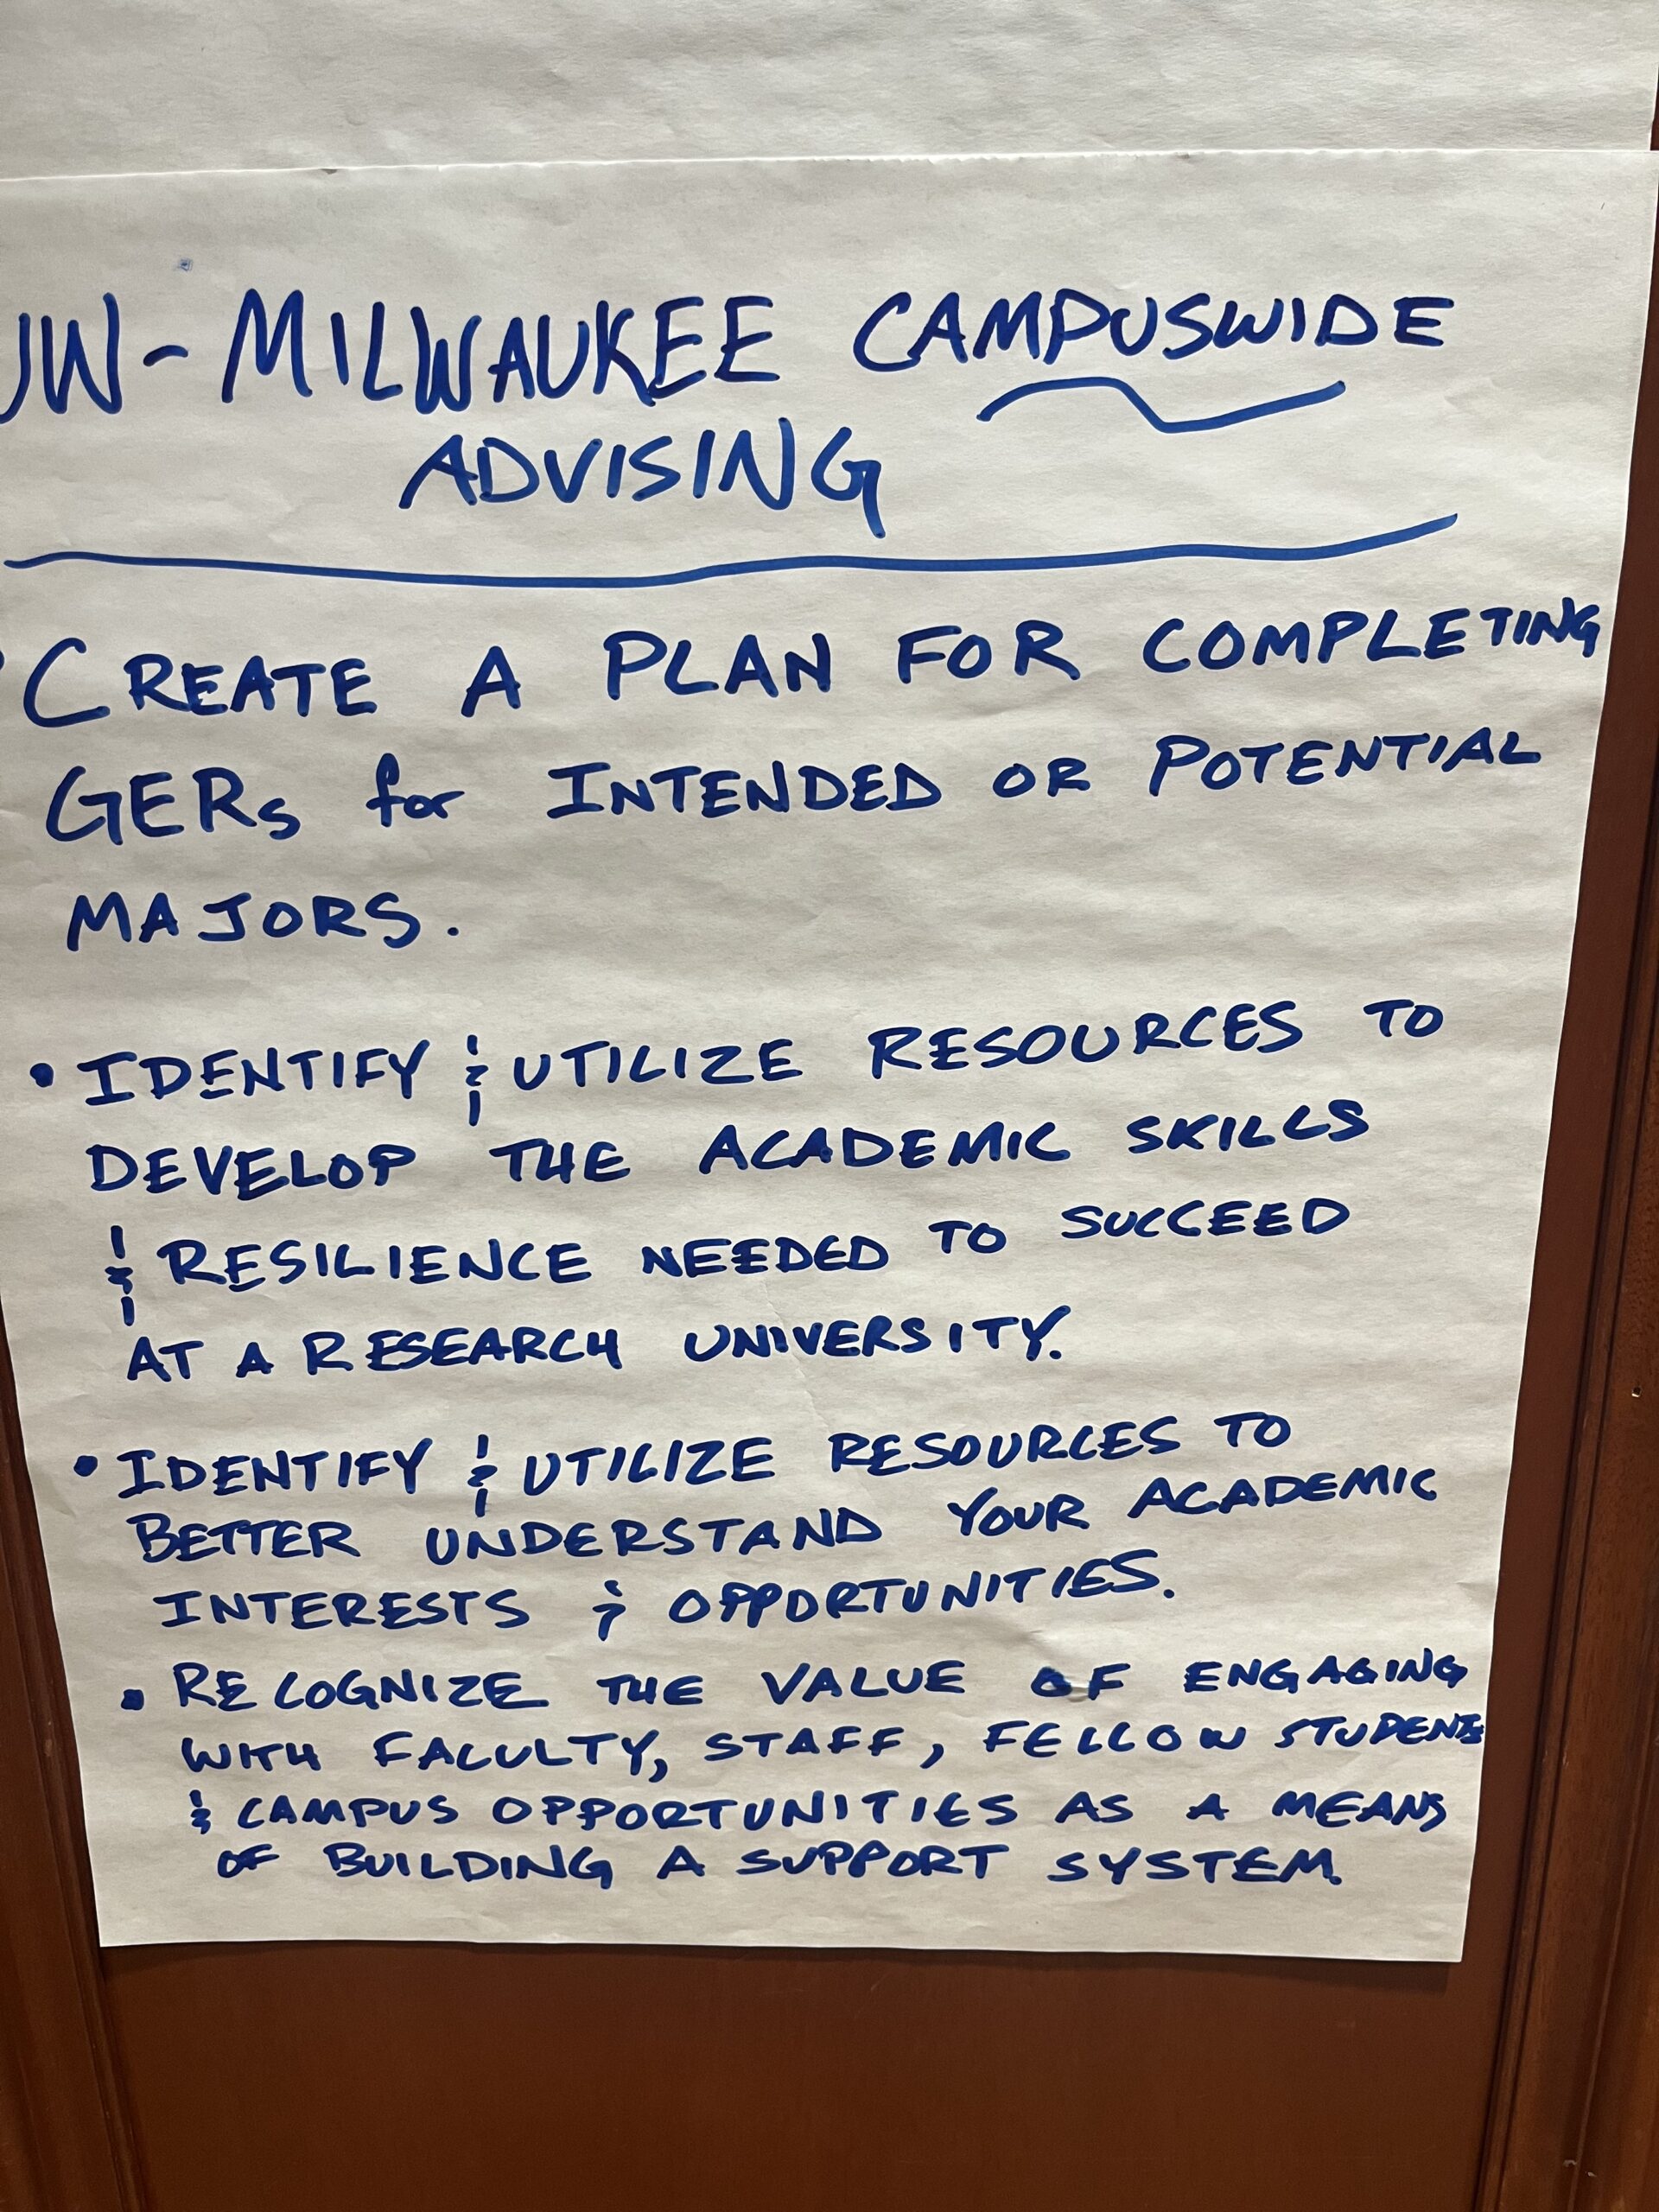 UW-MILWAUKEE CAMPUSWIDE
ADVISING
• CREATE A PLAN FOR COMPLETING
GERs for INTENDED OR POTENTIAL
MAJORS.
• IDENTIFY & UTILIZE RESOURCES TO
DEVELOP THE ACADEMIC SKILLS
& RESILIENCE NEEDED TO SUCCEED
AT A RESEARCH UNIVERSITY.
• IDENTIFY & UTILIZE RESOURCES TO
BETTER UNDERSTAND YOUR ACADEMIC
INTERESTS & OPPORTUNITIES.
• RECOGNIZE THE VALUE OF ENGAGING
WITH FACULTY, STAFF, FELLOW STUDENTS
& CAMPUS OPPORTUNITIES AS A MEANS
OF BUILDING A SUPPORT SYSTEM.